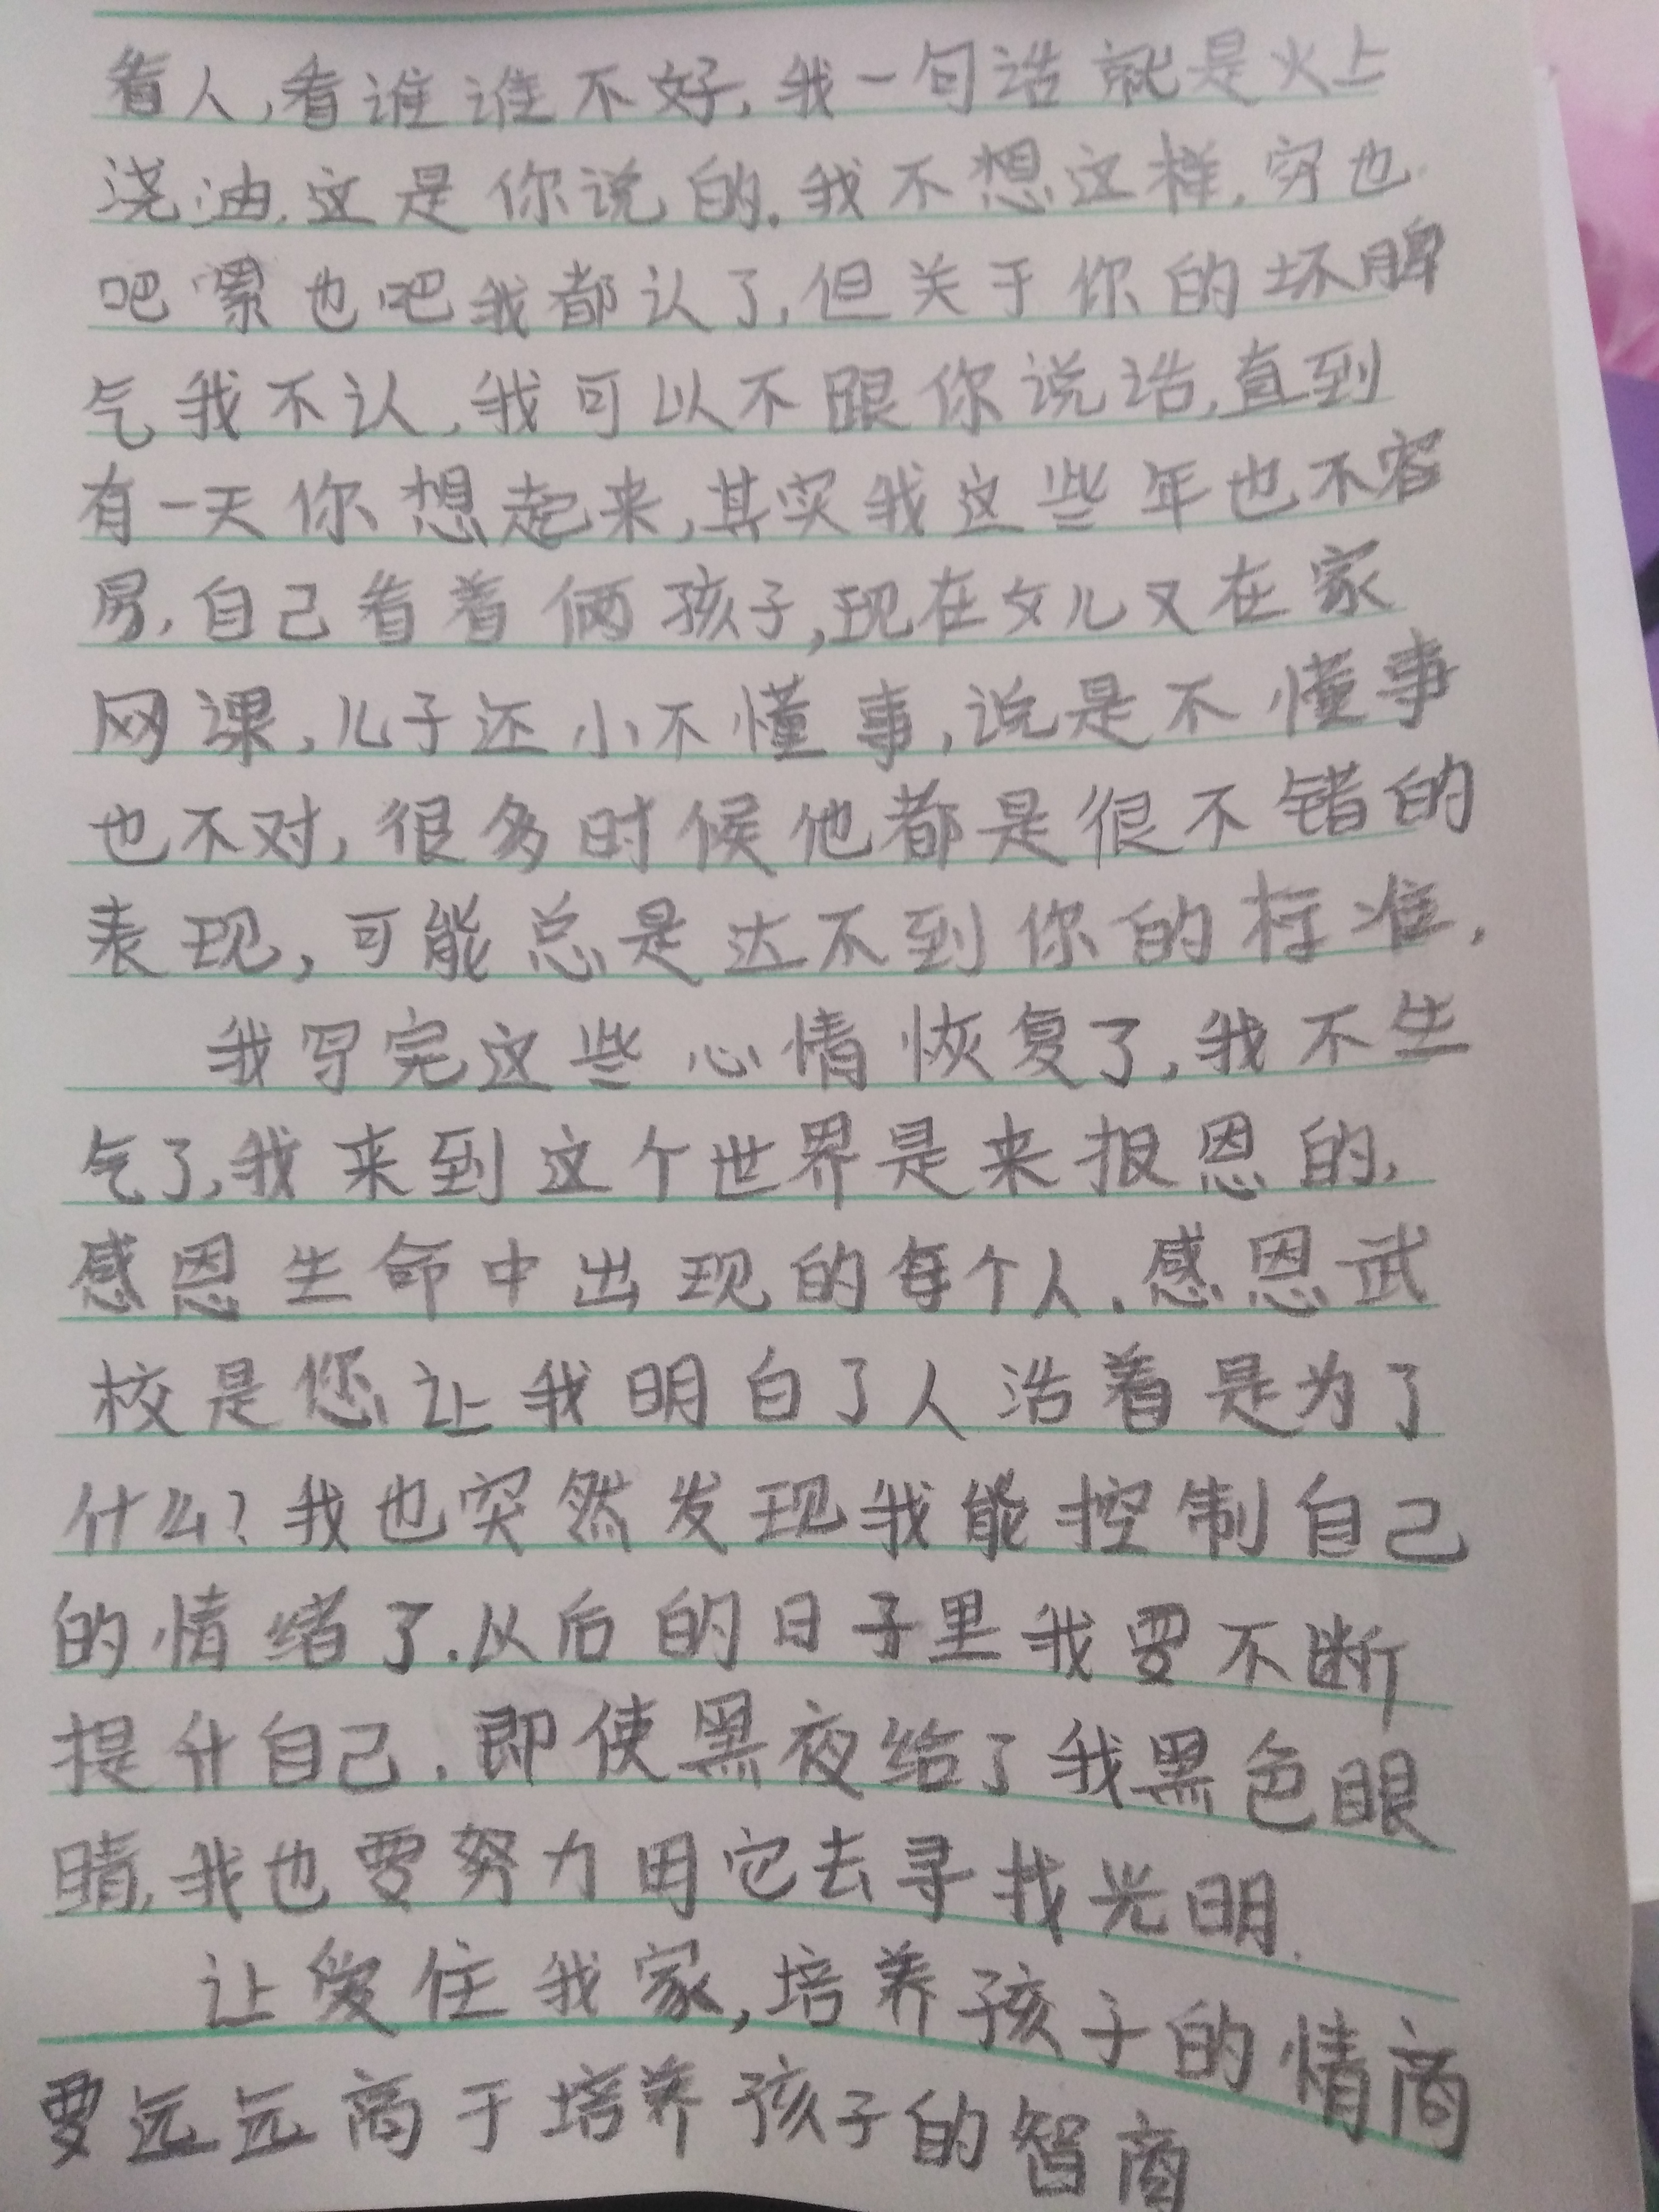 看人,看谁谁不好,我一句话就是火上
浇油,这是你说的.我不想这样,穷也
吧累也吧我都认了,但关于你的坏脾
气我不认,我可以不跟你说话,直到
有一天你想起来,其实我这些年也不容
易,自己看着俩孩子,现在女儿又在家
网课,儿子还小不懂事,说是不懂事
也不对,很多时候他都是很不错的
表现,可能总是达不到你的标准,
我写完这些心情恢复了,我不生
气了,我来到这个世界是来报恩的,
感恩生命中出现的每个人.感恩武
校是您让我明白了人活着是为了
什么?我也突然发现我能控制自己
的情绪了.以后的日子里我要不断
提升自己.即使黑夜给了我黑色眼
睛,我也要努力用它去寻找光明.
让爱住我家,培养孩子的情商
要远远高于培养孩子的智商